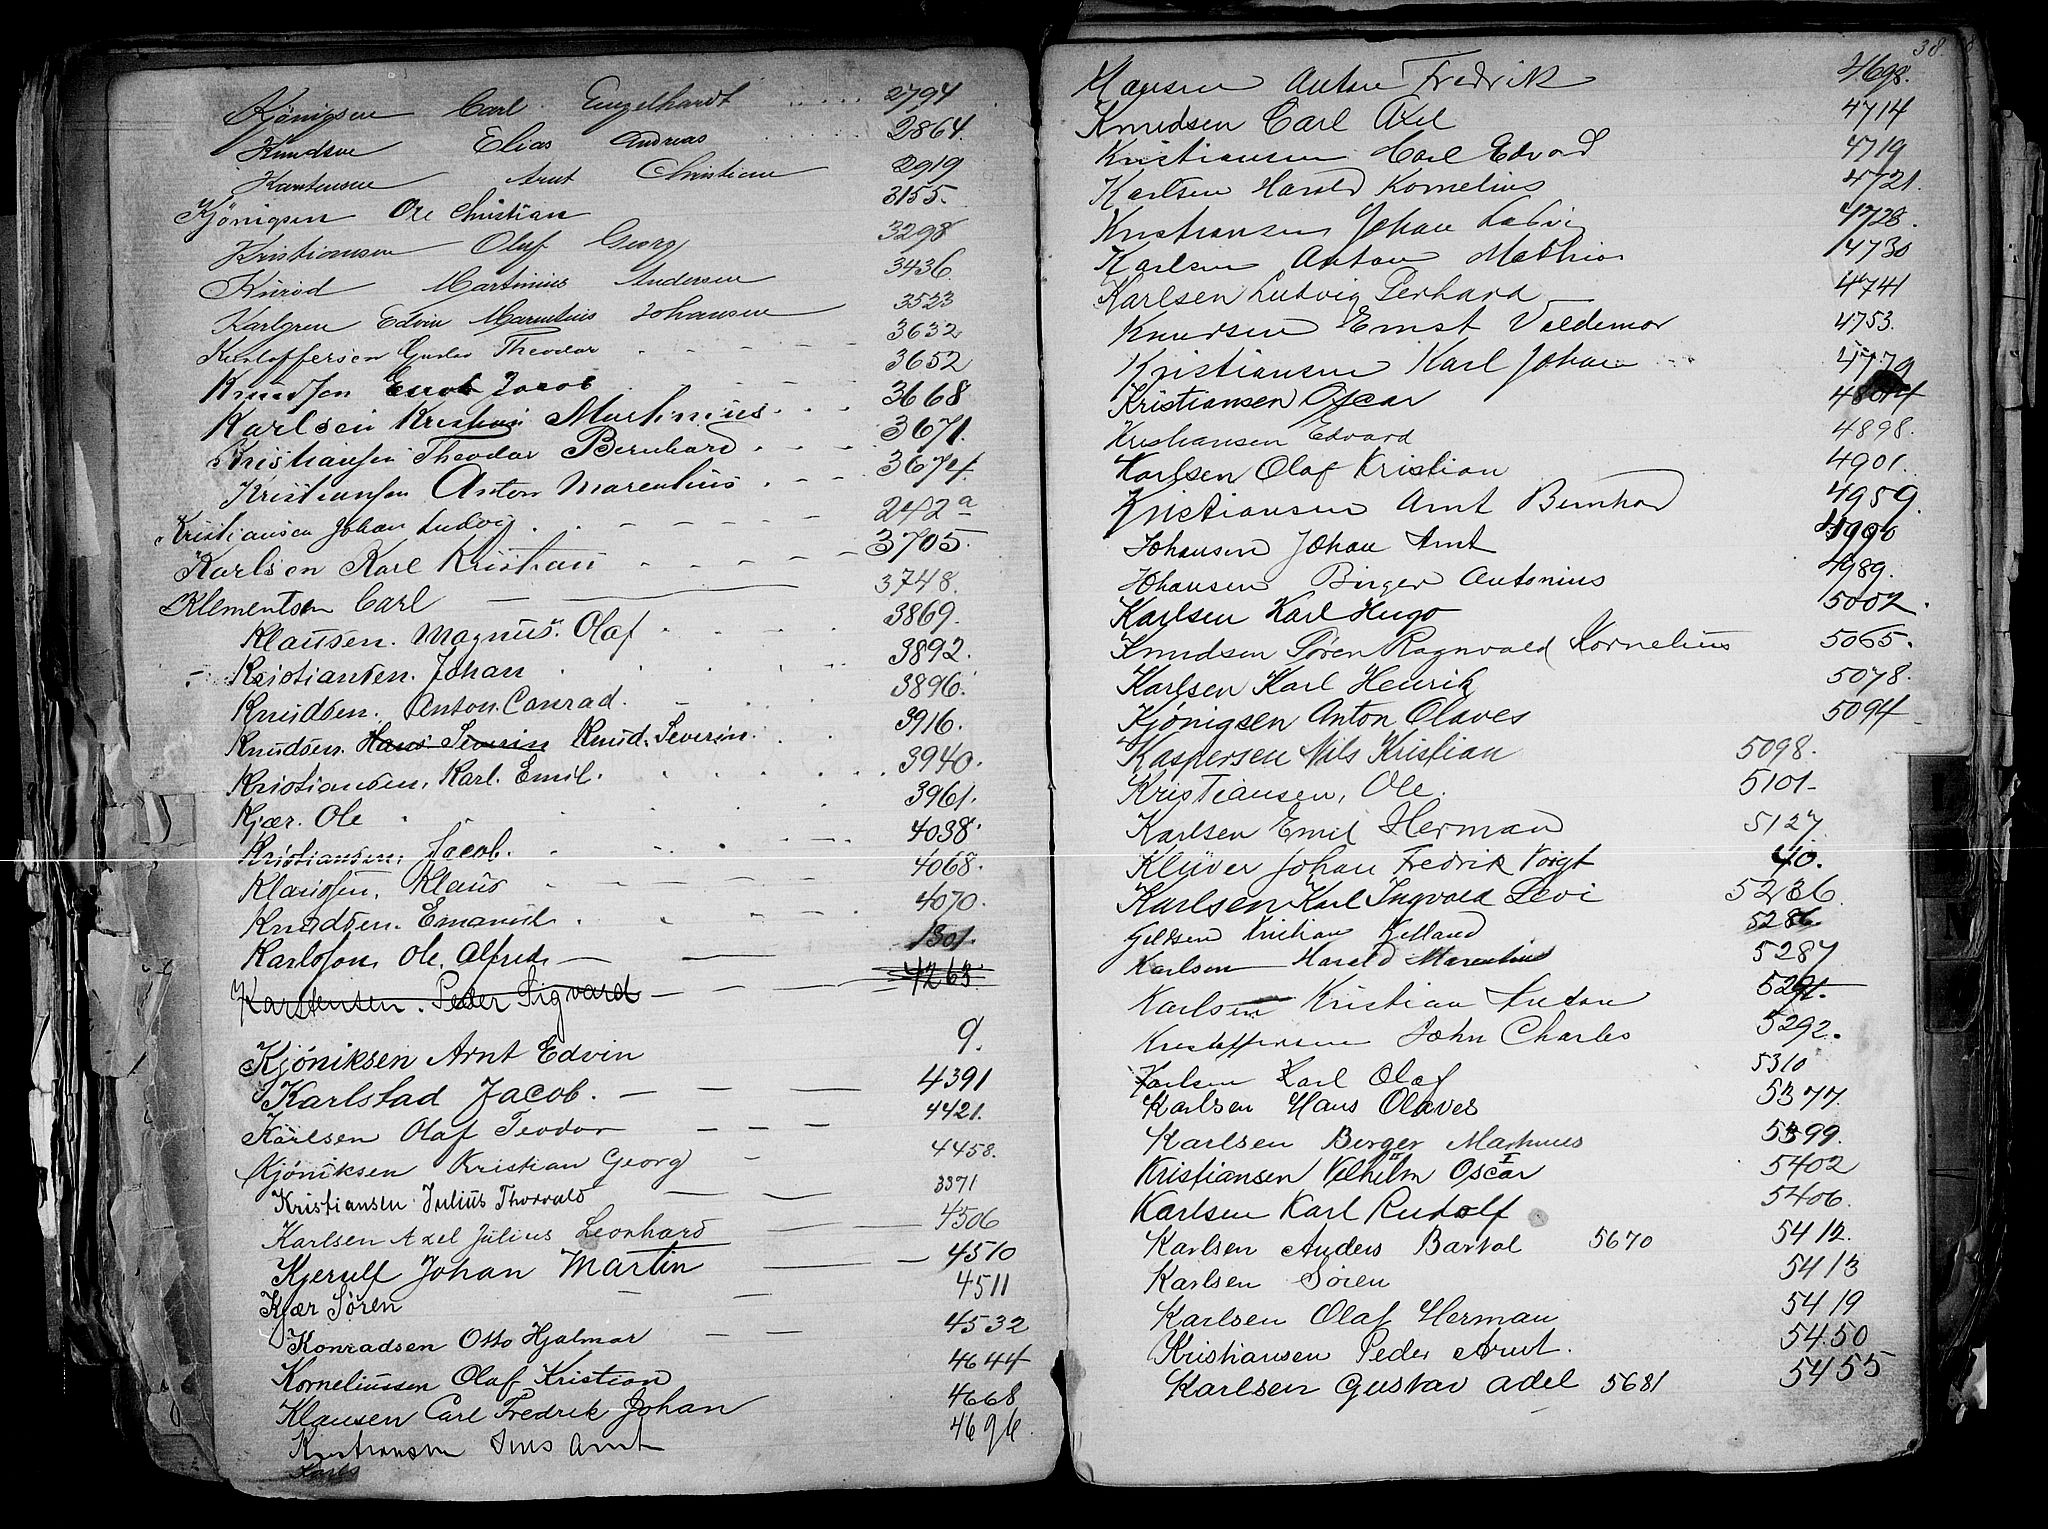 Kjönigsen Carl Engelhardt 2794
Knudsen Elias Andreas 2864.
Karstensen Arnt Christian 2919
Kjönigsen Ole Christian 3155.
Kristiansen Oluf Georg 3298
Knrød Martinius Andersen 3436.
Karlgren Edvin Marentius Johansen 3523
Kristoffersen Gustav Theodor 3632
Knudsen Jacob 3652
Karlsen Kristian Martinius 3668
Kristiansen Theodor Bernhard 3671.
Kristiansen Anton Marentius 3674.
Kristiansen Johan Ludvig 242a
Karlsen Karl Kristian 3705.
Klementsen Carl 3748.
Klausen. Magnus. Olaf 3869.
Kristiansen. Johan 3892.
Knudsen. Anton. Conrad. 3896.
Knudsen. Hans Severin Knud. Severin. 3916.
Kristiansen. Karl. Emil. 3940.
Kjær. Ole 3961.
Kristiansen. Jacob. 4038.
Klausen. Klaus 4068.
Knudsen. Emanuel 4070.
Karlsson, Ole. Alfred. 1301.
Karstensen. Peder Sigvard 4263.
Kjöniksen Arnt Edvin 9.
Karlstad Jacob. 4391
Karlsen Olaf Teodor 4421.
Kjöniksen Kristian Georg 4458.
Kristiansen Julius Thorvald 3371
Karlsen Axel Julius Leonhard 4506
Kjerulf Johan Martin 4510
Kjær Sören 4511
Konradsen Otto Hjalmar 4532
Korneliussen Olaf Kristian 4644
Klausen Carl Fredrik Johan 4668
Kristiansen Jens Arnt 4696
Karls
38
Hansen Anton Fredrik 4698.
Knudsen Carl Axel 4714
Kristiansen Karl Edvard 4719
Karlsen Harald Kornelius 4721.
Kristiansen Johan Ludvig 4728.
Karlsen Anton Mathias 4730
Karlsen Ludvig Gerhard 4741
Knudsen Ernst Valdemar 4753.
Kristiansen Karl Johan 4779
Kristiansen Oscar
Kristiansen Edvard 4898.
Karlsen Olaf Kristian 4901.
Kristiansen Arnt Bernhard 4959.
Johansen Johan Arnt
Johansen Birger Antonius 4989.
Karlsen Karl Hugo 5002.
Knudsen Sören Ragnvald Kornelius 5065.
Karlsen Karl Henrik 5078.
Kjönigsen Anton Olaves 5094
Kaspersen Nils Kristian 5098.
Kristiansen, Ole. 5101-
Karlsen Emil Herman 5127.
Klüver Johan Fredrik Voigt 40.
Karlsen Karl Ingvald Levi 5236.
Kristian Kjelland 5286
Karlsen Harald Marentius 5287
Karlsen Kristian Anton 5291.
Kristoffersen John Charles 5292.
Karlsen Karl Olaf 5310
Karlsen Hans Olaves 5377.
Karlsen Berger Martinius 5399.
Kristiansen Vilhelm II Oscar I 5402
Karlsen Karl Rudolf 5406.
Karlsen Anders Bartol 5670 5412.
Karlsen Sören 5413
Karlsen Olaf Herman 5419
Kristiansen Peder Arnt. 5450
Karlsen Gustav Adel 5681 5455